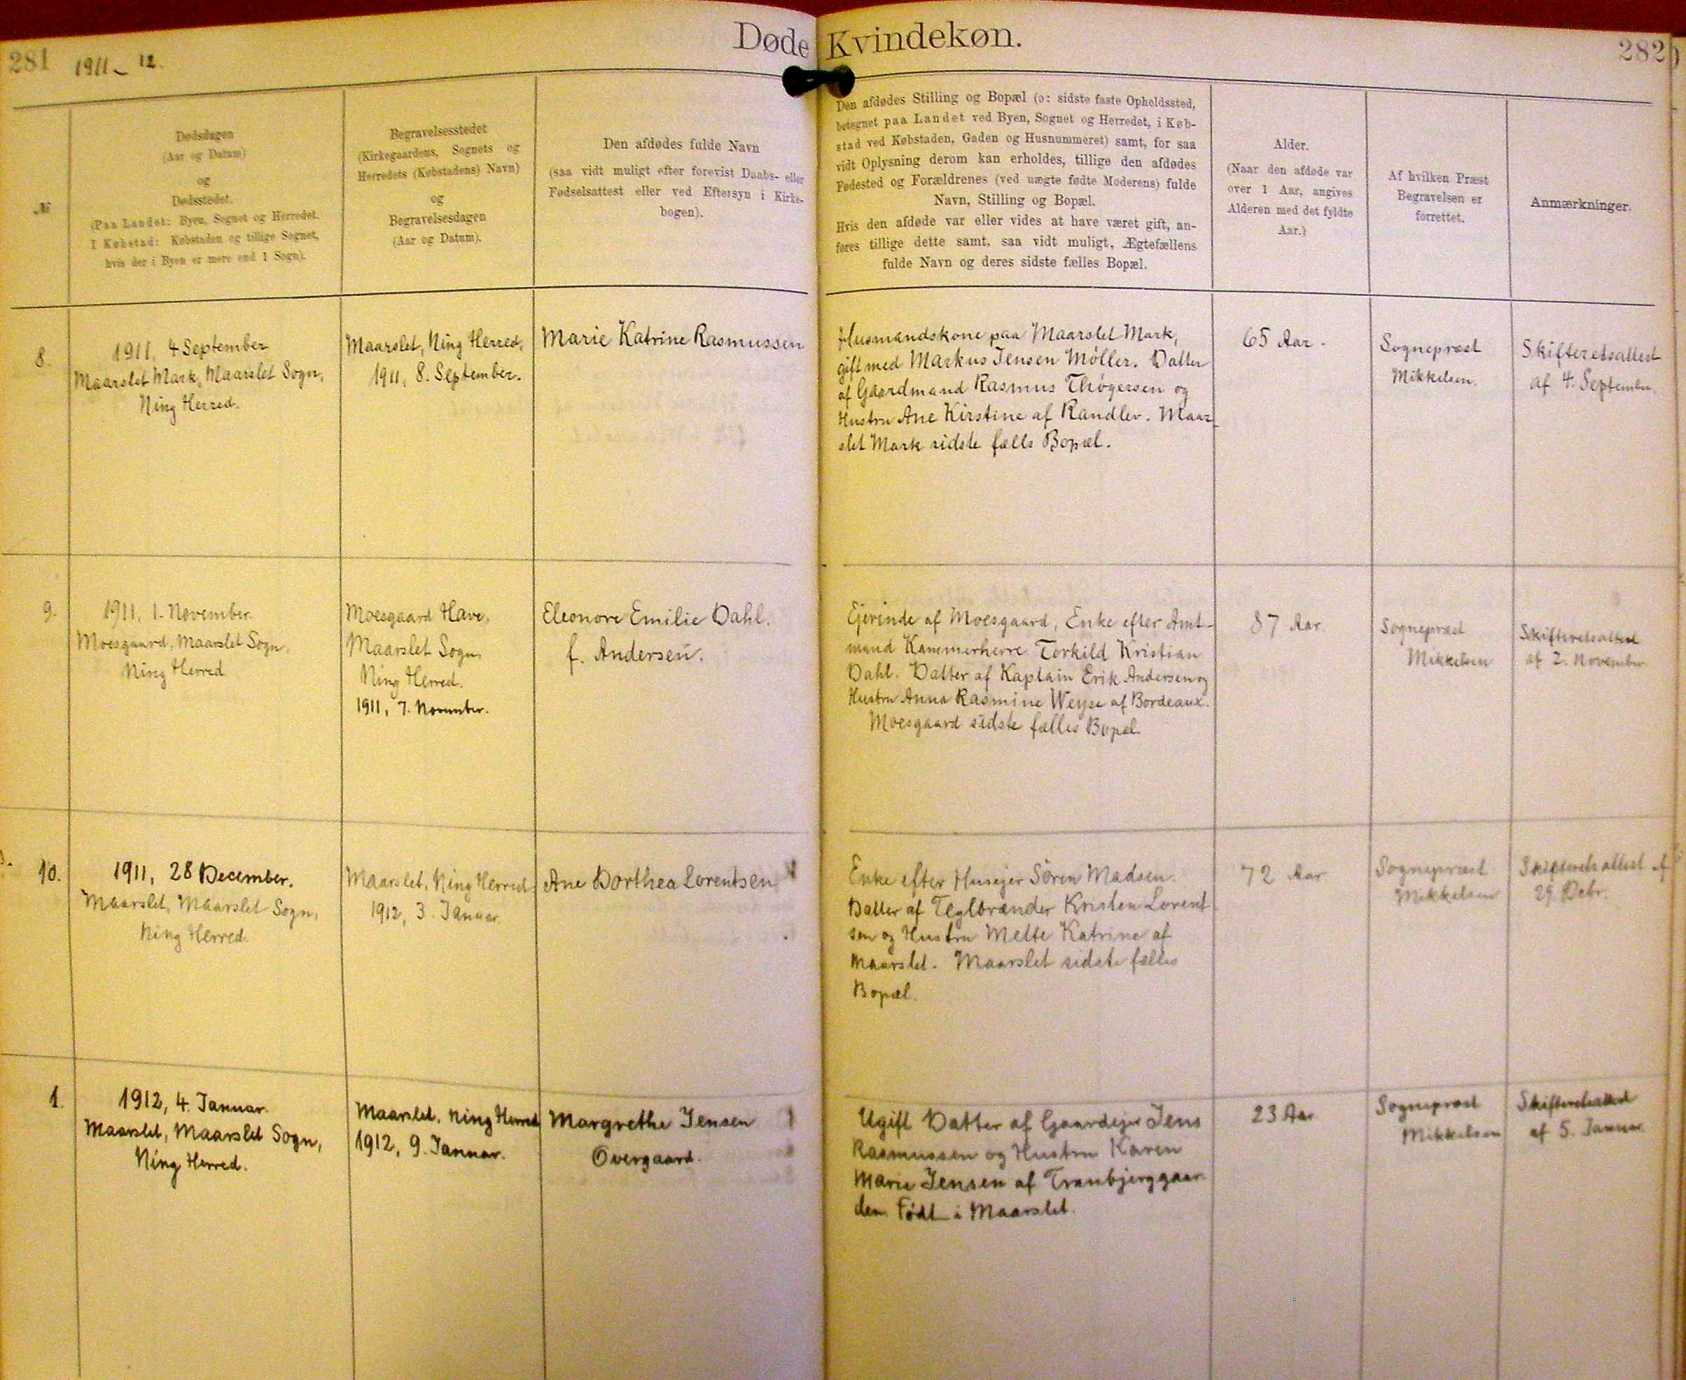 281
1911-12.
Døde Kvindekøn.
282
№
Dødsdagen
(Aar og Datum)
og
Dødsstedet.
(Paa Landet: Byen, Sognet og Herredet.
I Købstad: Købstaden og tillige Sognet,
hvis der i Byen er mere end 1 Sogn).
Begravelsesstedet
(Kirkegaardens, Sognets og
Herredets (Købstadens) Navn)
og
Begravelsesdagen
(Aar og Datum).
Den afdødes fulde Navn
(saa vidt muligt efter forevist Daabs- eller
Fødselsattest eller ved Eftersyn i Kirke-
bogen).
Den afdødes Stilling og Bopæl (ɔ: sidste faste Opholdssted,
betegnet paa Landet ved Byen, Sognet og Herredet, i Køb-
stad ved Købstaden, Gaden og Husnummeret) samt, for saa
vidt Oplysning derom kan erholdes, tillige den afdødes
Fødested og Forældrenes (ved uægte fødte Moderens) fulde
Navn, Stilling og Bopæl.
Hvis den afdøde var eller vides at have været gift, an-
føres tillige dette samt, saa vidt muligt, Ægtefællens
fulde Navn og deres sidste fælles Bopæl.
Alder.
(Naar den afdøde var
over 1 Aar, angives
Alderen med det fyldte
Aar.)
Af hvilken Præst
Begravelsen er
forrettet.
Anmærkninger.
8.
1911, 4 September
Maarslet Mark, Maarslet Sogn,
Ning Herred.
Maarslet, Ning Herred,
1911, 8. September.
Marie Katrine Rasmussen
Husmandskone paa Maarslet Mark,
gift med Markus Jensen Møller. Datter
af Gaardmand Rasmus Thøgersen og
Hustru Ane Kirstine af Randlev. Maar-
slet Mark sidste fælls Bopæl.
65 Aar.
Sognepræst
Mikkelsen.
Skifteretsattest
af 4. September.
9.
1911, 1. November.
Moesgaard, Maarslet Sogn,
Ning Herred
Moesgaard Have,
Maarslet Sogn,
Ning Herred.
1911, 7. November.
Eleonore Emilie Dahl.
f. Andersen.
Ejerinde af Moesgaard, Enke efter Amt-
mand Kammerherre Torkild Kristian
Dahl. Datter af Kaptain Erik Andersen og
Hustru Anna Rasmine Weyse af Bordeaux.
Moesgaard sidste fælles Bopæl.
87 Aar
Sognepræst
Mikkelsen
Skifteretsattest
af 2. November
10.
1911, 28 December.
Maarslet, Maarslet Sogn,
Ning Herred.
Maarslet, Ning Herred
1912, 3. Januar.
Ane Dorthea Lorentsen
Enke efter Husejer Søren Madsen.
Datter af Teglbrænder Kristen Lorent
sen og Hustru Mette Katrine af
Maarslet. Maarslet sidste fælles
Bopæl.
72 Aar
Sognepræst
Mikkelsen
Skifteretsattest af
29. Debr.
1.
1912, 4. Januar.
Maarslet, Maarslet Sogn,
Ning Herred.
Maarslet, Ning Herred
1912, 9. Januar.
Margrethe Jensen
Overgaard.
Ugift Datter af Gaardejer Jens
Rasmussen og Hustru Karen
Marie Jensen af Tranbjerggaar-
den. Født i Maarslet.
23 Aar
Sognepræst
Mikkelsen
Skifteretsattest
af 5. Januar.